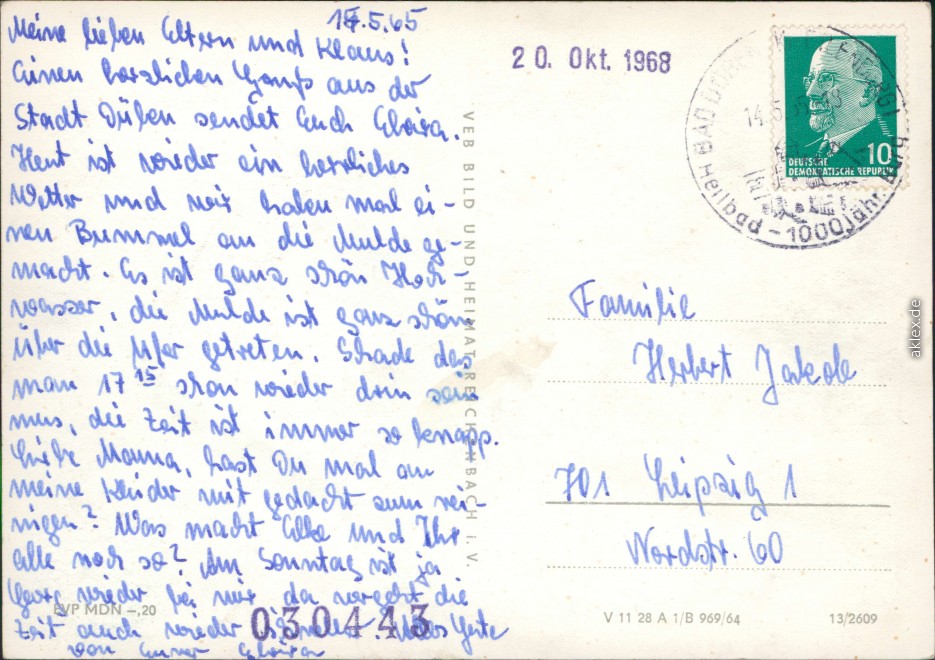 14.5.65
Meine lieben Eltern und Klaus!
Einen herzlichen Gruß aus der
Stadt Düben sendet Euch
Heut ist wieder ein herrliches
Wetter und wir haben mal ei-
nen Bummel an die Mulde ge-
macht. Es ist ganz schön Hoch-
wasser, die Mulde ist ganz schön
über die Ufer getreten. Schade das
man 17 15 schon wieder drin sein
mus, die Zeit ist immer so knapp.
Liebe Mama, hast Du mal an
meine Kleider mit gedacht zum rei-
nigen? Was macht Elke und Ihr
alle noch so? Am Sonntag ist ja
wieder bei mir, da vergeht die
Zeit auch wieder
von Eurer
EVP MDN –,20
030443
VEB BILD UND HEIMAT REICHENBACH I. V.
20. Okt. 1968
BAD DÜBEN
14.5.
Heilbad – 1000jähr. Burg
DEUTSCHE
DEMOKRATISCHE REPUBLIK
10
Familie
Herbert
701 Leipzig 1
Nordstr. 60
V 11 28 A 1/B 969/64
13/2609
aklex.de